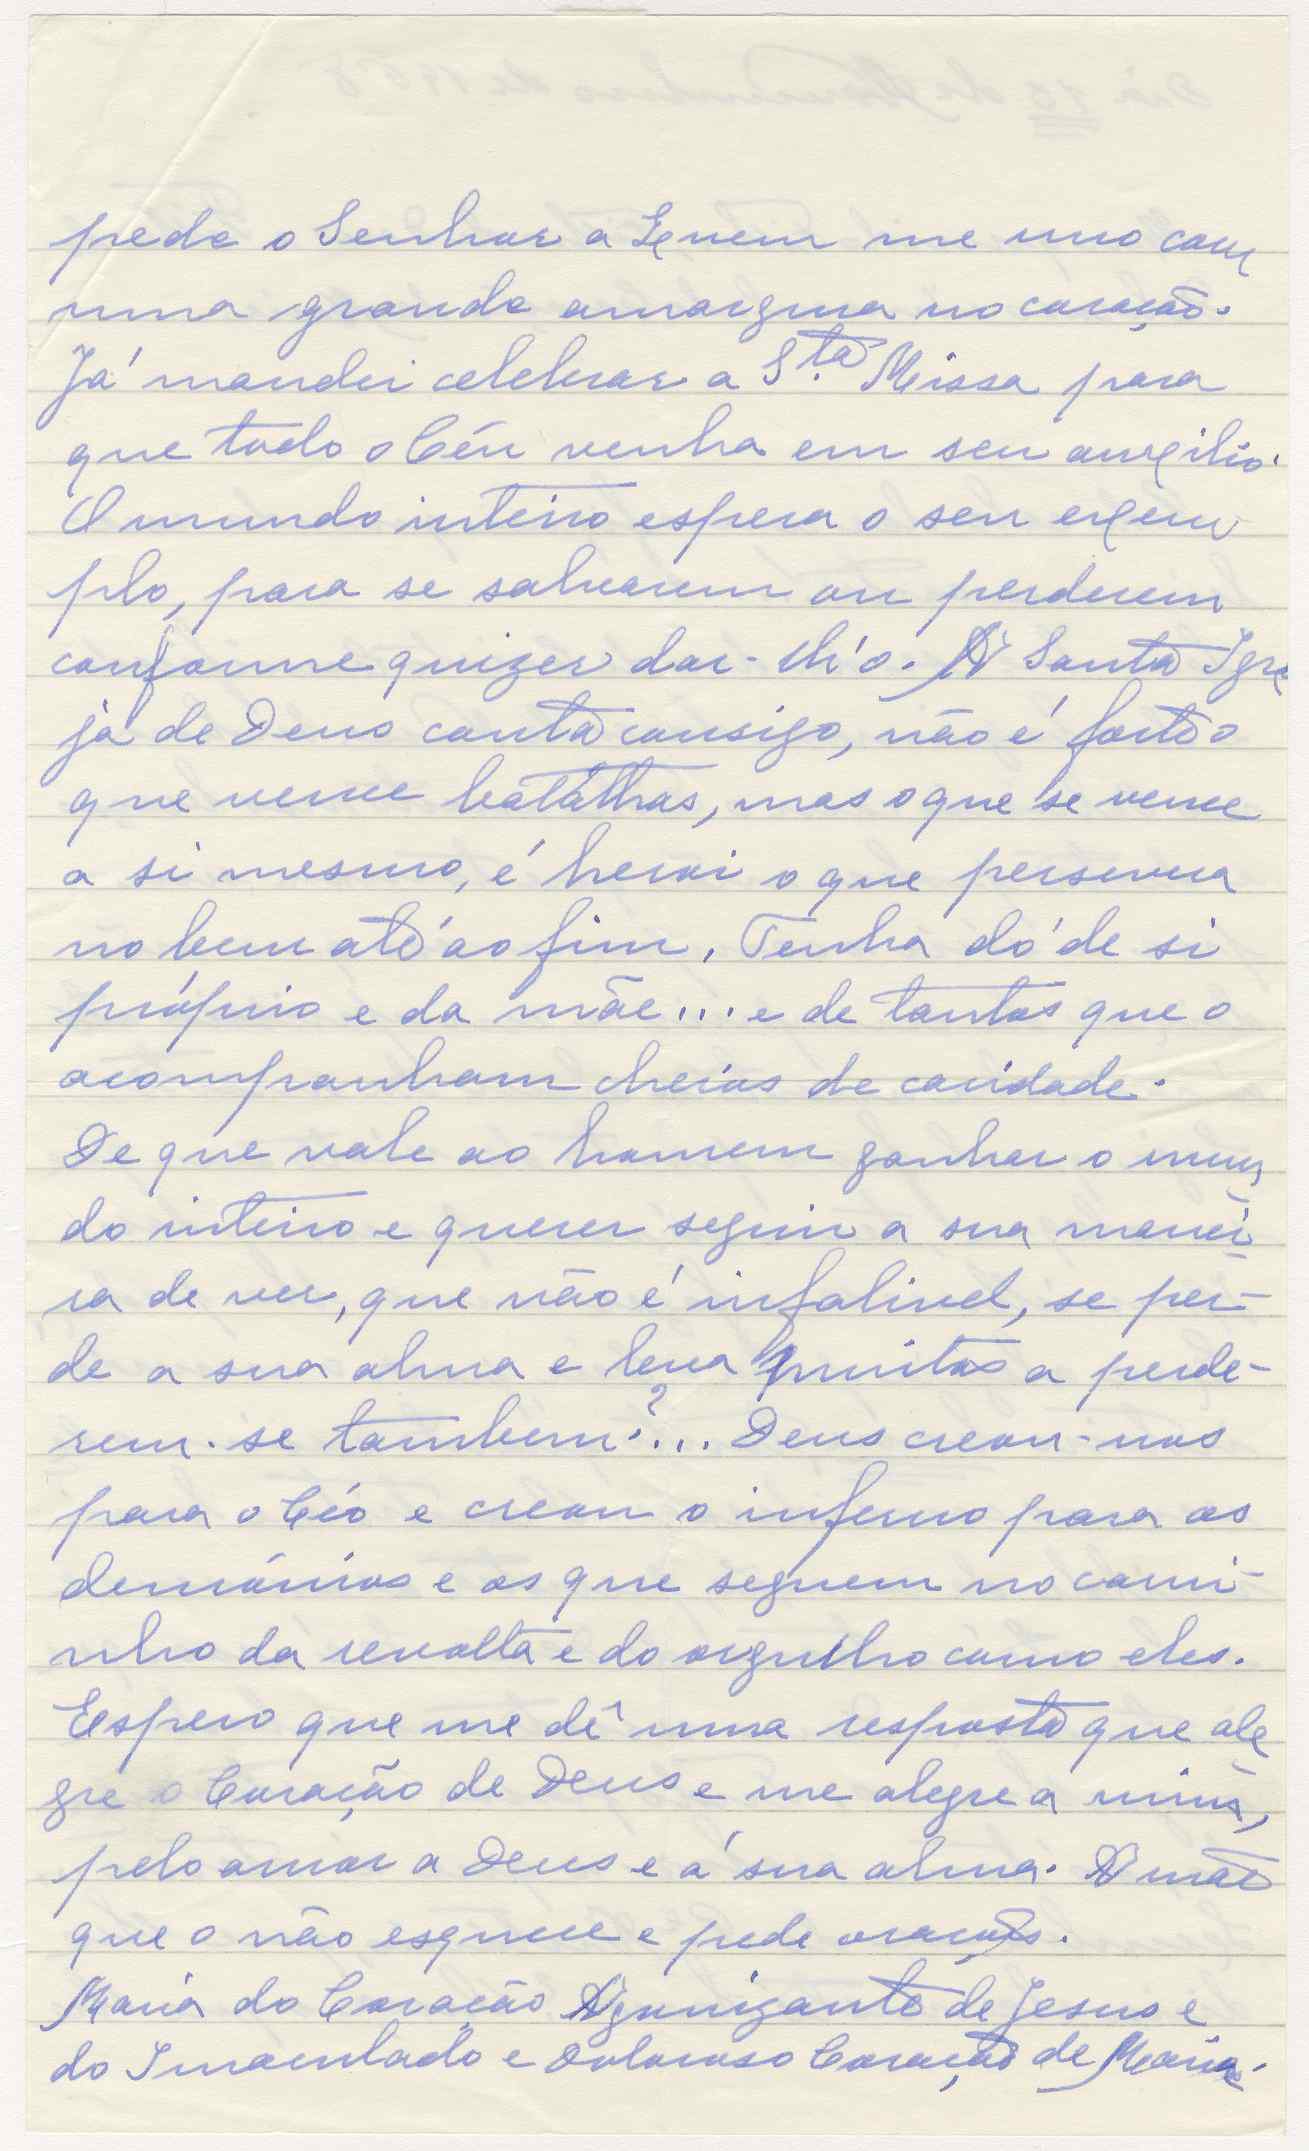 pede o Senhor a Quem me uno com
uma grande amargura no coração.
Já mandei celebrar a S.ta Missa para
que todo o Céu venha em seu auxilio.
O mundo inteiro espera o seu exem
plo, para se salvarem ou perderem
conforme quizer dar-lh'o. A Santa Igre
ja de Deus conta consigo, não é forte o
que vence batalhas, mas o que se vence
a si mesmo, é heroi o que persevera
no bem até ao fim. Tenha dó de si
próprio e da mãe... e de tantos que o
acompanham cheios de caridade.
De que vale ao homem ganhar o mun
do inteiro e querer seguir a sua manei
ra de ver, que não é infalivel, se per-
de a sua alma e leva muitos a perde-
rem-se tambem?... Deus creou-nos
para o Céo e creou o inferno para os
demónios e os que seguem no cami-
nho da revolta e do orgulho como eles.
Espero que me dê uma resposta que ale
gre o Coração de Deus e me alegre a mim,
pelo amor a Deus e á sua alma. A mãe
que o não esquece e pede orações.
Maria do Coração Agonizante de Jesus e
do Imaculado e Doloroso Coração de Maria.